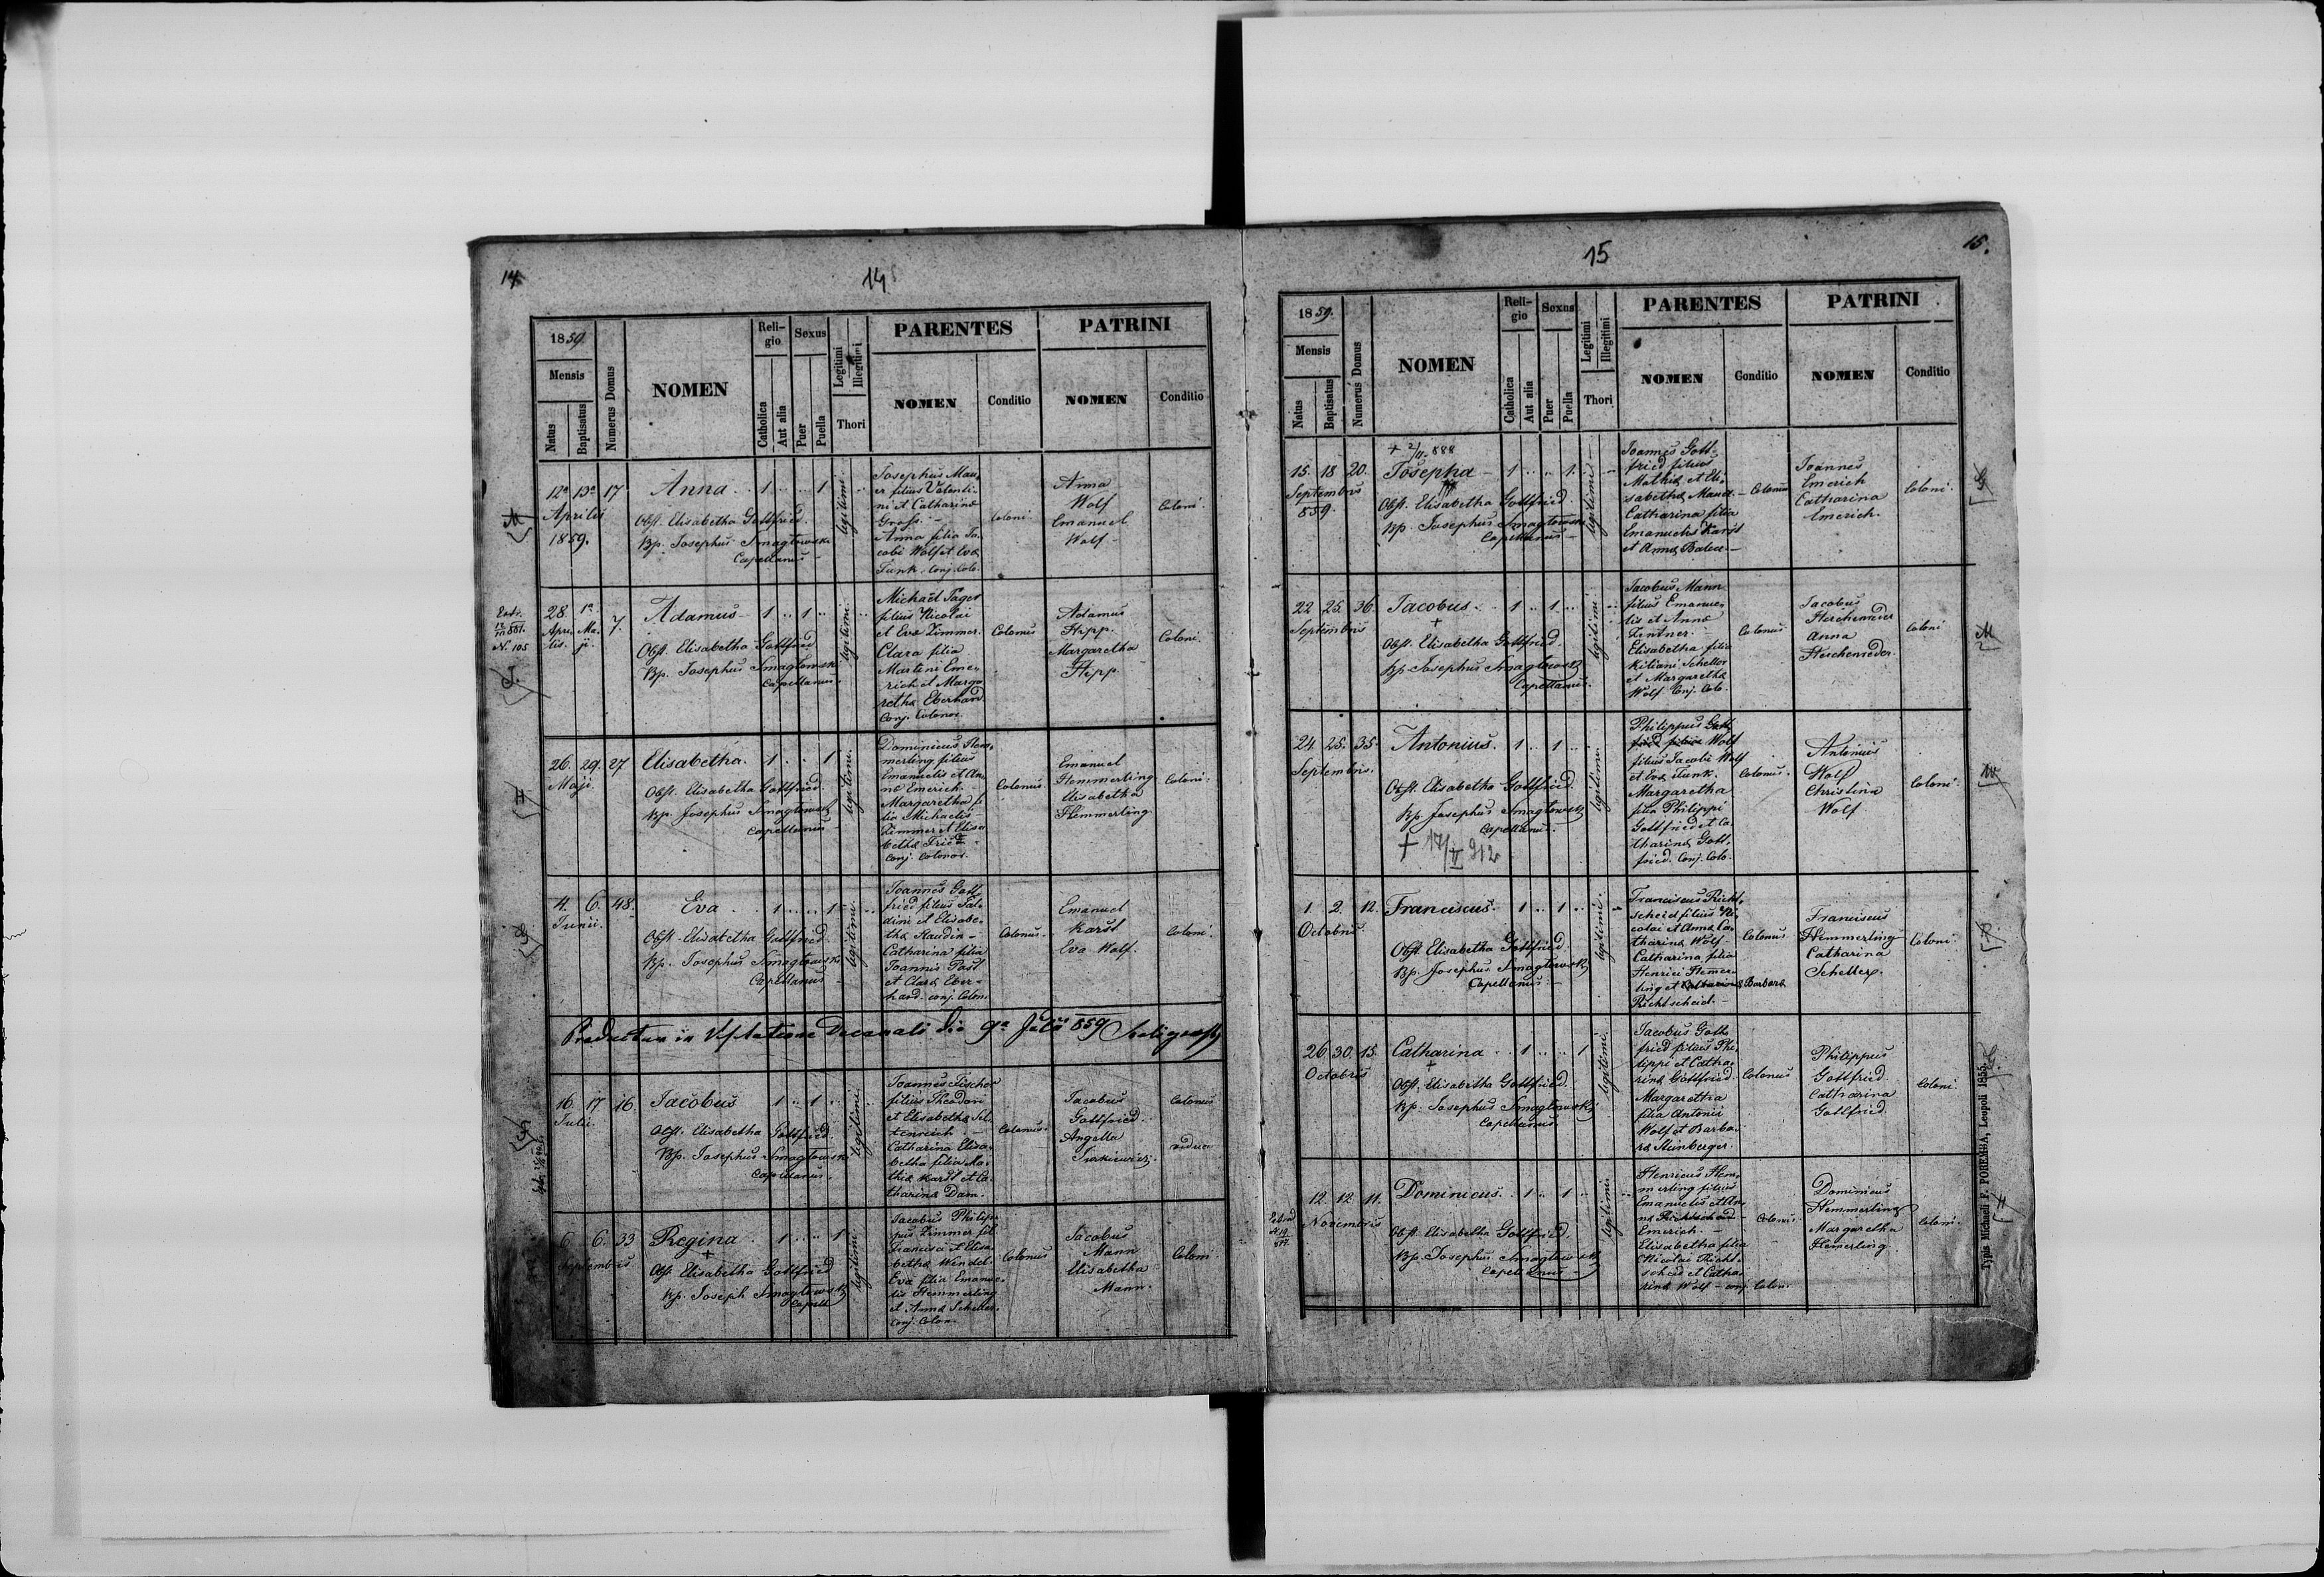 14
14
1859.
Mensis
Natus
Baptisatus
Numerus Domus
NOMEN
Reli-
gio
Catholica
Aut alia
Sexus
Puer
Puella
Legitimi
Illegitimi
Thori
PARENTES
NOMEN
Conditio
PATRINI
NOMEN
Conditio
12a 13a 17
Aprilis
1859.
Anna
1 1
legitimi
Obst. Elisabetha Gottfried.
Bp. Josephus Smagłowski
Capellanus
Josephus Mau-
er filius Valenti-
ni et Catharina
Gross. -
Anna filia Ja-
cobi Wolf et Eva
Funk. Conj. Colo.
Coloni.
Anna
Wolf
Emanuel
Wolf
Coloni.
N. 105
28. 1a 7.
Apri- Ma-
lis. ji.
Adamus
1 1
legitimi
Obst. Elisabetha Gottfried
Bp. Josephus Smagłowski
Capellanus.
Michael
filius Nicolai
et Eva Zimmer.
Clara filia
Martini Eme-
rich et Marga-
retha Eberhard
Conj. Colonor.
Colonus
Adamus
Hipp.
Margaretha
Hipp
Coloni.
26. 29. 27
Maji
Elisabetha.
1 1
legitimi.
Obst. Elisabetha Gottfried.
Bp. Josephus Smagłowski
Capellanus
Dominicus Hem-
merling filius
Emanuelis et An-
na Emerich
Margaretha fi-
lia Michaelis
Zimmer et Elisa-
betha Fried
Conj. Colonor.
Colonus
Emanuel
Hemmerling
Elisabetha
Hemmerling
Coloni.
4. 6. 48.
Junii.
Eva
1 1
legitimi.
Obst. Elisabetha Gottfried.
Bp. Josephus Smagłowski
Capellanus
Joannes Gott-
fried filius
et Elisabe-
tha
Catharina filia
Joannis Post
et Clara Eber-
hard. conj. Colon.
Colonus.
Emanuel
Karst
Eva Wolf.
Coloni.
Productum in Visitatione Decanali die 9a Julii 859
16. 17 16
Julii.
Jacobus
1 1
legitimi.
Obst. Elisabetha Gottfried.
Bp. Josephus Smagłowski
Capellanus.
Joannes Fischer
filius Theodori
et Elisabetha
Catharina Elisa-
betha filia Ma-
thia Karst et Ca-
tharina Dam.
Colonus.
Jacobus
Gottfried.
Angella
Colonus
vidua
6. 6. 33
Septembris
Regina
+
1 1
legitimi
Obst. Elisabetha Gottfried
Bp. Joseph Smagłowski
Capell
Jacobus Philip-
pus Zimmer fil.
Francisci et Elisa-
betha Windel.
Eva filia Emanue-
lis Hemmerling
et Anna Scheller.
conj. Colon.
Colonus
Jacobus
Mann
Elisabetha
Mann.
Coloni.
15
15.
1859.
Mensis
Natus
Baptisatus
Numerus Domus
NOMEN
Reli-
gio
Catholica
Aut alia
Sexus
Puer
Puella
Legitimi
Illegitimi
Thori
PARENTES
NOMEN
Conditio
PATRINI
NOMEN
Conditio
15. 18 20.
Septembris
859.
+ 2/II. 888
Josepha
1 1.
legitimi
Obst. Elisabetha Gottfried.
Bp. Josephus Smagłowski
Capellanus
Joannes Gott-
fried filius
Mathia et Eli-
sabetha Mauer.
Catharina filia
Emanuelis Karst
et Anna
Colonus
Joannes
Emerich
Catharina
Emerich.
Coloni.
22 25 36.
Septembris
Jacobus.
+
1 1
legitimi.
Obst. Elisabetha Gottfried.
Bp. Josephus Smagłowski
Capellanus.
Jacobus Mann
filius Emanue-
lis et Anna
Zintner.
Elisabetha filia
Kiliani Scheller
et Margaretha
Wolf Conj. Colo.
Colonus
Jacobus
Anna
Coloni
24 25. 35.
Septembris.
Antonius.
1 1
legitimi.
Obst. Elisabetha Gottfried.
Bp. Josephus Smagłowski
Capellanus.
+ 17/II 912
Philippus Gott-
fried filius Wolf
filius Jacobi Wolf
et Eva Funk.
Margaretha
filia Philippi
Gottfried et Ca-
tharina Gott-
fried. Conj. Colo.
Colonus.
Antonius
Wolf
Christina
Wolf
Coloni.
1. 2. 12.
Octobris
Franciscus.
1 1
legitimi.
Obst. Elisabetha Gottfried.
Bp. Josephus Smagłowski
Capellanus.
Franciscus Richt-
scheid filius Ni-
colai et Anna Ca-
tharina Wolf -
Catharina filia
Henrici Hemer-
ling et Catharina Barbara
Richtscheid. -
Colonus
Franciscus
Hemmerling
Catharina
Scheller.
Coloni.
26 30. 15.
Octobris
Catharina
+
1 1
legitimi.
Obst. Elisabetha Gottfried.
Bp. Josephus Smagłowski
Capellanus.
Jacobus Gott-
fried filius Phi-
lippi et Catha-
rina Gottfried.
Margaretha
filia Antonii
Wolf et Barba-
ra Steinberger.
Colonus
Philippus
Gottfried
Catharina
Gottfried.
Coloni.
12. 12. 11.
Novembris
Dominicus.
1 1
legitimi.
Obst. Elisabetha Gottfried,
Bp. Josephus Smagłowski
Capellanus
Henricus Hem-
merling filius
Emanuelis et An-
na Richtscheid
Emerich.
Elisabetha filia
Nicolai Richt-
scheid et Catha-
rina Wolf - conj. Colon.
Colonus
Dominicus
Hemmerling
Margaretha
Hemerling
Coloni.
Typis Michaeli F. POREMBA, Leopoli 1855.